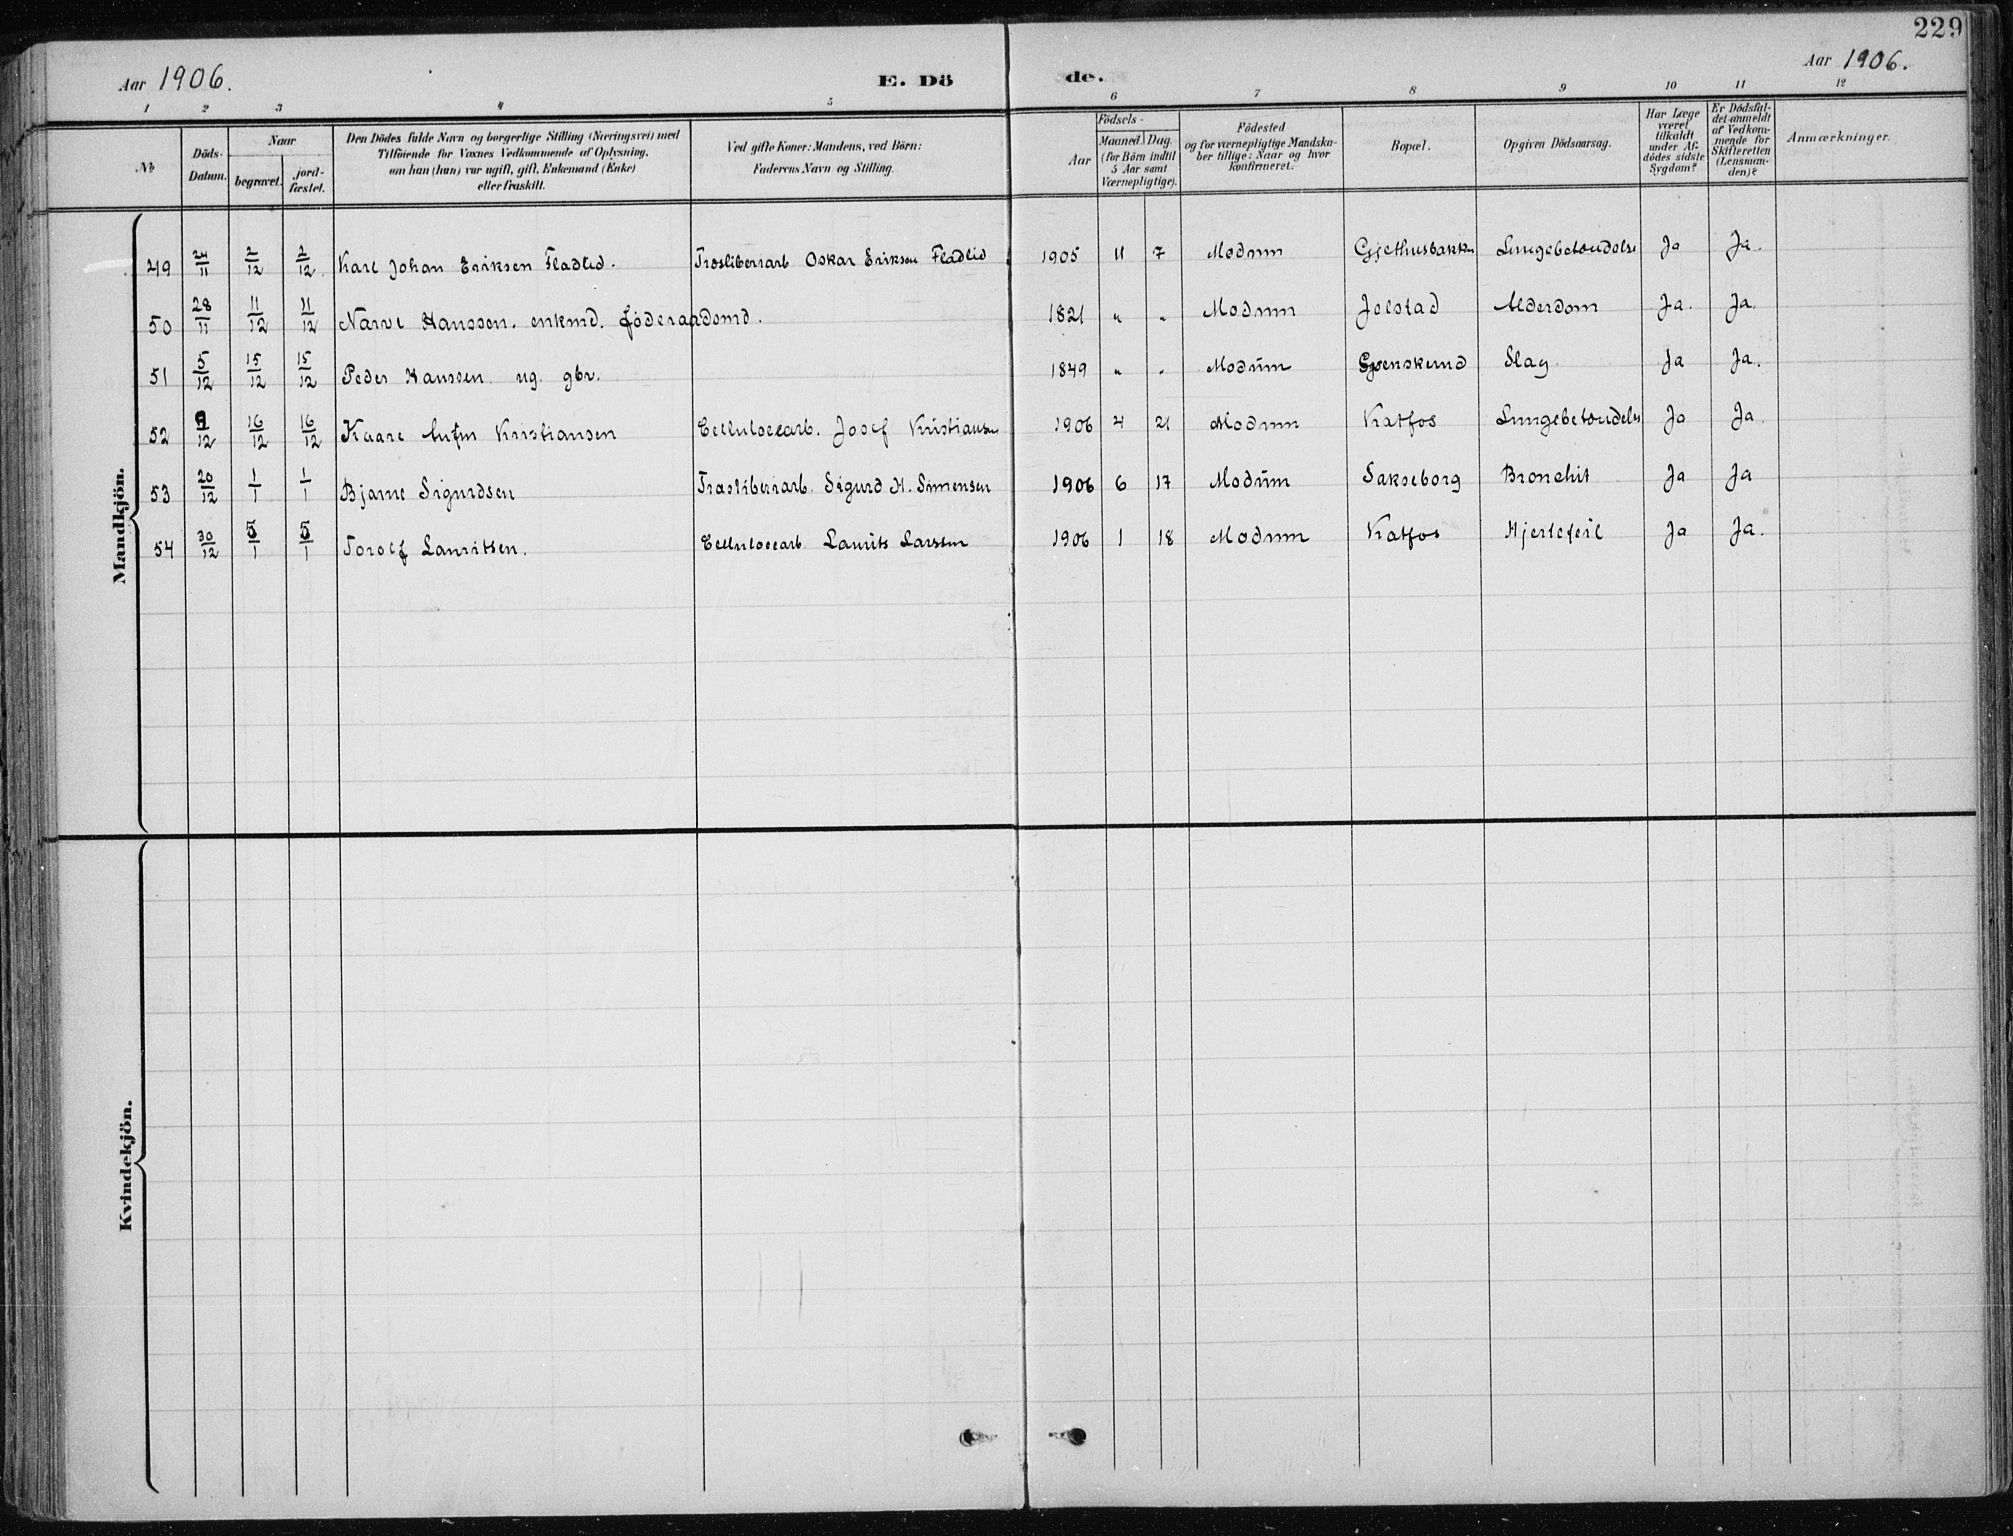 229
Aar 1906.
E. Dö de.
Aar 1906.
1 2 3 4 5 6 7 8 9 10 11 12
No
Döds-
Datum.
Naar
begravet.
jord-
fæstet.
Den Dödes fulde Navn og borgerlige Stilling (Næringsvei) med
Tilföiende for Voxnes Vedkommende af Oplysning,
om han (hun) var ugift, gift, Enkemand (Enke)
eller fraskilt.
Ved gifte Koner: Mandens, ved Börn:
Faderens Navn og Stilling.
Födsels-
Aar
Maaned. Dag.
(for Börn indtil
5 Aar samt
Værnepligtige).
Födested
og for værnepligtige Mandska-
ber tillige: Naar og hvor
konfirmeret.
Bopæl.
Opgiven Dödsaarsag.
Har Læge
været
tilkaldt
under Af-
dödes sidste
Sygdom?
Er Dödsfal-
det anmeldt
af Vedkom-
mende for
Skifteretten
(Lensman-
den)?
Anmærkninger.
Mandkjön.
49 24/11 2/12 2/12 Karl Johan Eriksen Fladlid. Træsliberiarb Oskar Eriksen Fladlid 1905 11 7 Modum Gjethusbakken Lungebetændelse Ja Ja.
50 28/11 11/12 11/12 Narve Hanssen. enkmd. föderaadsmd. 1821 " " Modum Jelstad Alderdom Ja. Ja.
51 5/12 15/12 15/12 Peder Hanssen ug. gbr. 1849 " " Modum Slag Ja Ja.
52 9/12 16/12 16/12 Kaare Kristiansen Cellulosearb. Josef Kristiansen 1906 4 21 Modum Katfos Lungebetændelse Ja Ja.
53 20/12 1/1 1/1 Bjarne Sigurdsen Træsliberiarb. Sigurd H. Simensen 1906 6 17 Modum Sakseborg Bronchit Ja Ja
54 30/12 5/1 5/1 Torolf Lauritsen. Cellulosearb Laurits Larssen 1906 1 18 Modum Katfos Hjertefeil Ja Ja.
Kvindekjön.